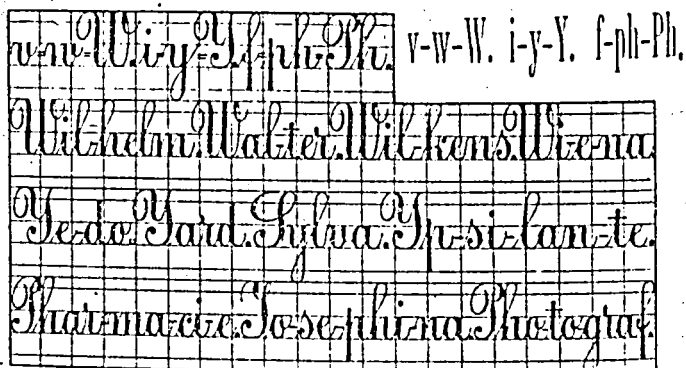 v-w-W. i-y-Y. f-ph-Ph. v-w-W. i-y-Y. f-ph-Ph.
Wil-helm. Wal-ter. Wil-kens. Wi-e-na.
Ye-do. Yard. Sylva. Yp-si-lan-te.
Phar-ma-ci-e. Io-se-phi-na. Pho-to-graf.